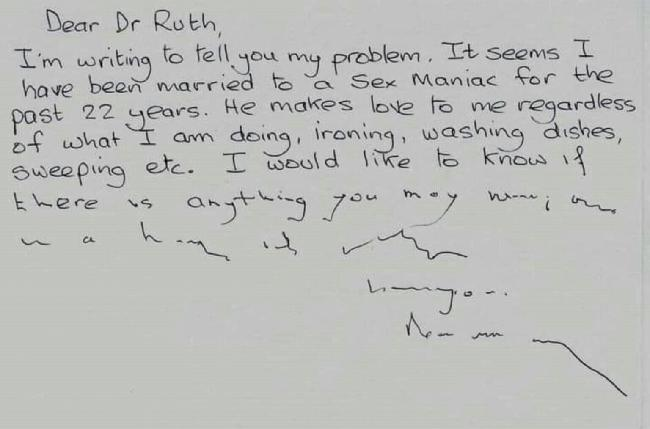 Dear Dr Ruth,
I'm writing to tell you my problem. It seems I
have been married to a Sex Maniac for the
past 22 years. He makes love to me regardless
of what I am doing, ironing, washing dishes,
sweeping etc. I would like to know if
there is anything you may
a